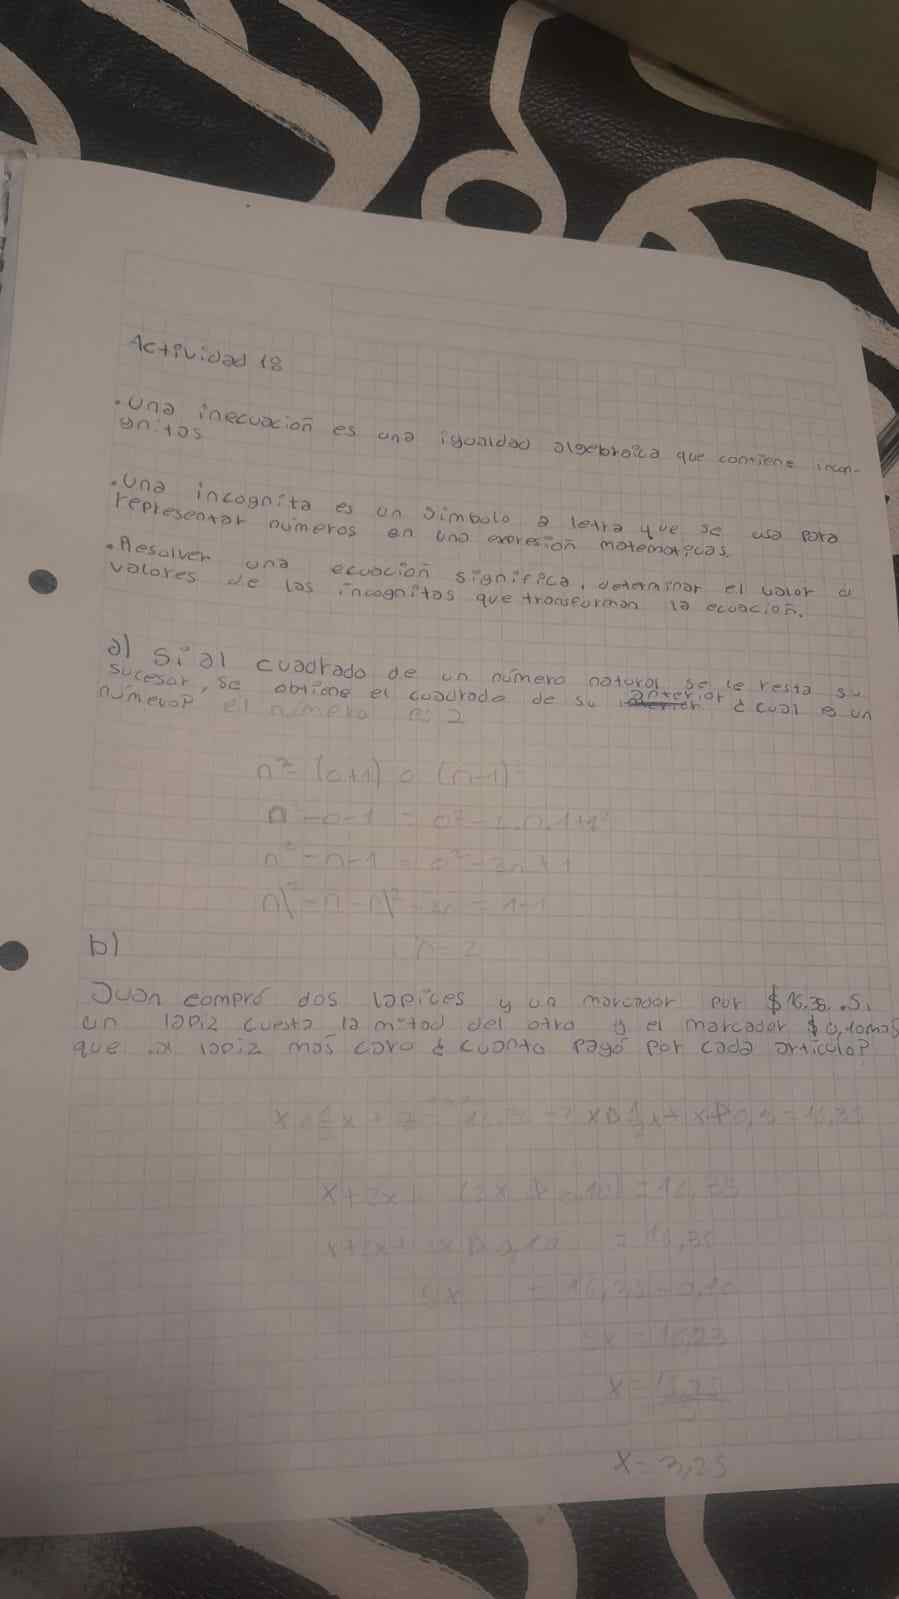 Actividad 18
• Una inecuación es una igualdad algebraica que contiene incon-
gnitas
• Una incognita es un simbolo o letra que se usa para
representar números en una expresión matematicas.
• Resolver una ecuación significa, determinar el valor o
valores de las incognitas que transforman la ecuación.
a) Si al cuadrado de un número natural se le resta su
sucesor, se obtiene el cuadrado de su anterior ¿cual es un
número? el número es 2
n² - (n+1) = (n-1)²
n² - n - 1 = n² - 2.n.1+1²
n² - n - 1 = n² - 2n + 1
n = 2
b)
Juan compró dos lapices y un marcador por $16,35. Si
un lapiz cuesta la mitad del otro y el marcador $0,10 mas
que el lapiz mas caro ¿cuanto pagó por cada articulo?
= 16,35
x + 2x + (2x + 0,10) = 16,35
x + 2x + 2x + 0,10 = 16,35
5x = 16,35 - 0,10
5x = 16,25
x = 16,25
x = 3,25